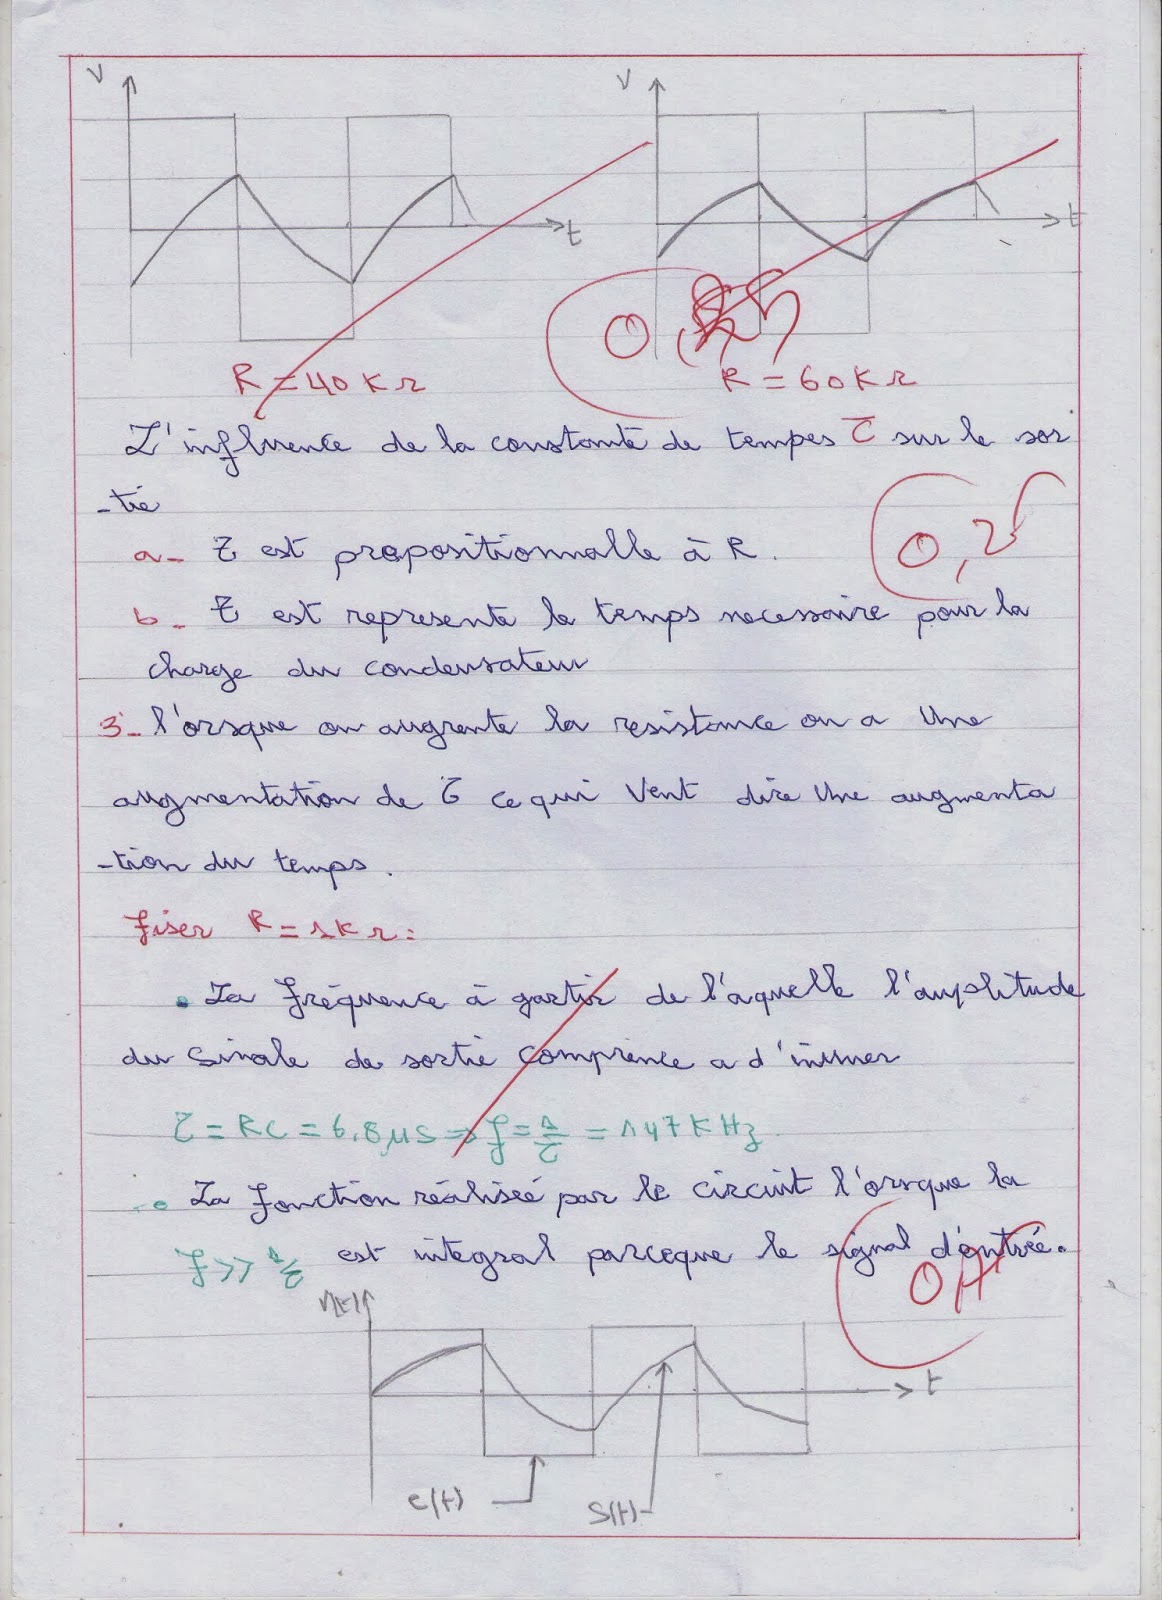 V
V
t
t
R = 40 K Ω
R = 60 K Ω
L'influence de la constante de tempes τ sur le sor
-tie
0,25
a- τ est propositionnalle à R.
b- τ est represente le temps necessaire pour la
charge du condensateur
3- l'orsque on augrente la resistance on a Une
augmentation de τ ce qui Vent dire Une augmenta
-tion du temps.
fiser R = 1K Ω:
• La fréquence à partir de l'aquelle l'amplitude
du Sinale de sortie comprence a d'
τ = RC = 6,8 μs ⇒ f = 1/τ = 147 KHz
• La fonction réalisée par le circuit l'orsque la
f >> 1/τ est intégral parceque le signal d'entrée.
t
e(t)
S(t)